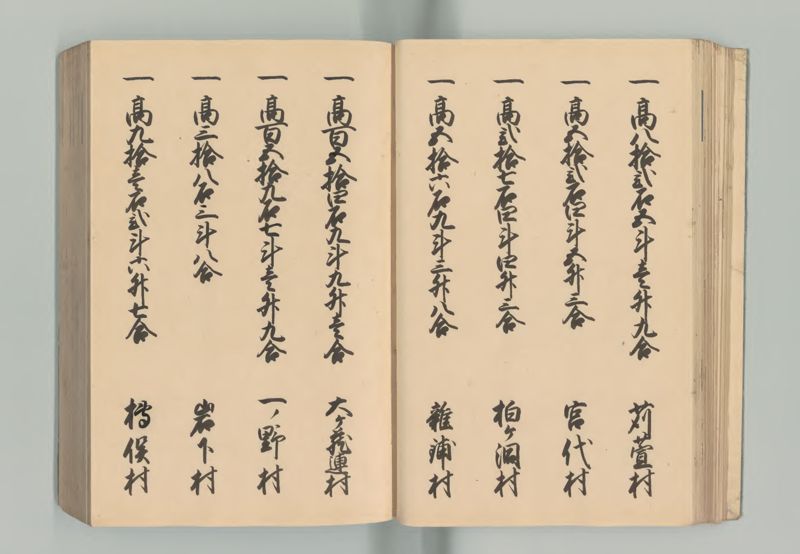 一 高八拾弐石五斗壱升九合 苅萱村
一 高五拾弐石四斗五升三合 宮代村
一 高弐拾七石四斗四升三合 柏ケ洞村
一 高五拾六石九斗三升八合 雑浦村
一 高百五拾四石九斗九升壱合 大ケ蔵連村
一 高百五拾九石七斗壱升九合 一ノ野村
一 高三拾八石三斗八合 岩下村
一 高九拾壱石弐斗六升七合 椁俣村